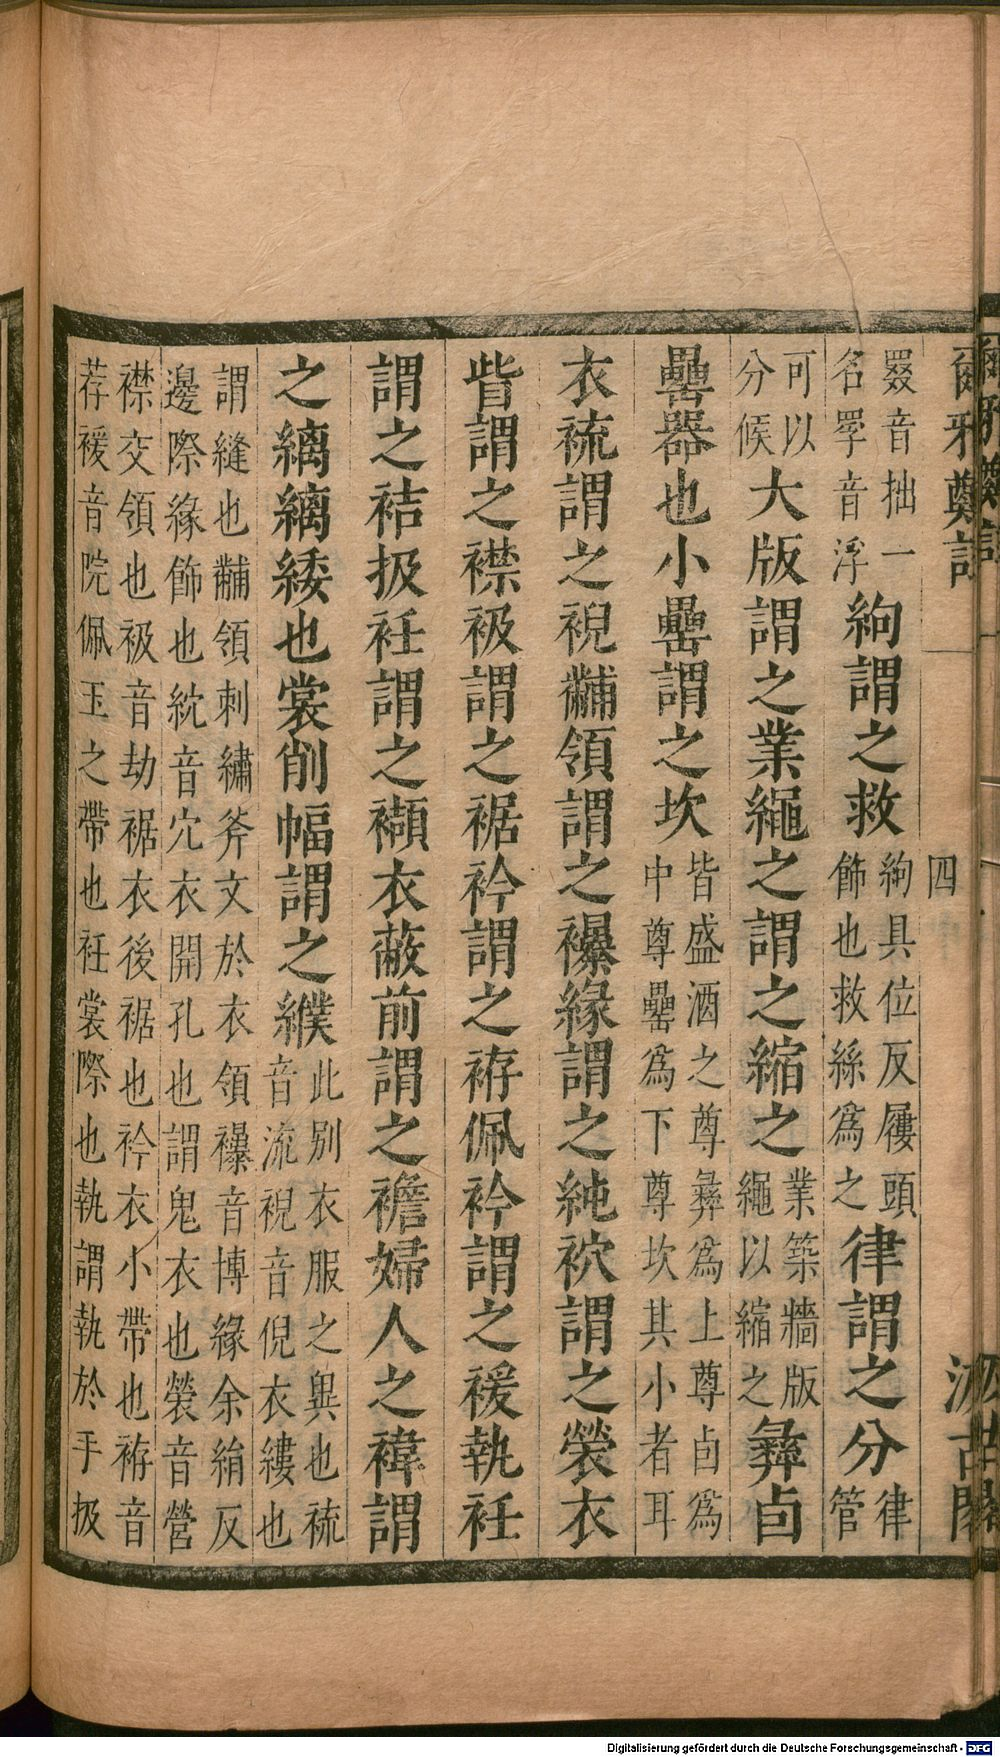 爾雅鄭註
四
汲古閣
罬音拙一名罦音浮絇謂之救絇具位反屨頭飾也救絲爲之律謂之分律管
可以分候大版謂之業繩之謂之縮之業築牆版繩以縮之彝卣
罍器也小罍謂之坎皆盛酒之尊彝爲上尊卣爲中尊罍爲下尊坎其小者耳
衣䘽謂之䘽黼領謂之襮緣謂之純袕謂之褮衣
眥謂之襟衱謂之裾衿謂之袸佩衿謂之褑執衽
謂之袺扱衽謂之襭衣蔽前謂之襜婦人之褘謂
之縭縭緌也裳削幅謂之纀此別衣服之異也䘽音流䘽音倪衣縷也
謂縫也黼領刺繡斧文於衣領襮音博緣余絹反邊際緣飾也紞音穴衣開孔也謂鬼衣也褮音營
襟交領也衱音劫裾衣後裾也衿衣小帶也袸音荐褑音院佩玉之帶也衽裳際也執謂執於手扱
Digitalisierung gefördert durch die Deutsche Forschungsgemeinschaft - DFG